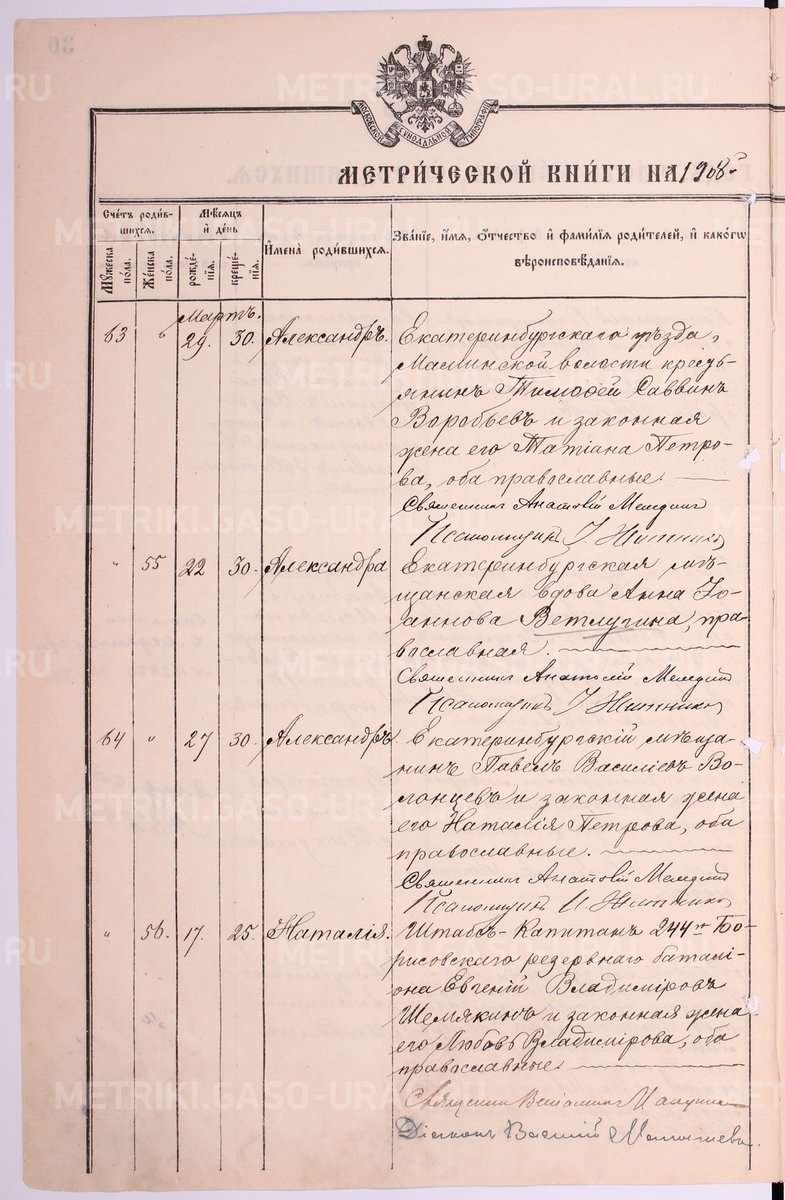 30
МОСКОВСКОЙ СѴНОДАЛЬНОЙ ТИПОГРАФІИ
МЕТРИ́ЧЕСКОЙ КНИ́ГИ НА 1908 г.
Сче́тъ роди́в-
шихся.
Мѣ́сяцъ
и҆ де́нь
И҆мена̀ роди́вшихся.
Зва́нїе, и҆́мя, ѻ҆́тчество и҆ фами́лїѧ роди́телей, и҆ како́гѡ
вѣроисповѣ́данїѧ.
Мꙋ́жеска
по́ла.
Же́нска
по́ла.
рожде́-
нїѧ.
креще́-
нїѧ.
Мартъ.
63 " 29. 30. Александръ. Екатеринбургскаго уѣзда,
Маминской волости кресть-
янинъ Тимофей Саввинъ
Воробьевъ и законная
жена его Татіана Петро-
ва, оба православные.
Священникъ Анатолій
Псаломщикъ
" 55 22 30. Александра Екатеринбургская мѣ-
щанская вдова Анна Іо-
аннова Ветлугина, пра-
вославная.
Священникъ Анатолій
Псаломщикъ
64 " 27 30. Александръ. Екатеринбургскій мѣща-
нинъ Павелъ Василіевъ
и законная жена
его Наталія Петрова, оба
православные.
Священникъ Анатолій
Псаломщикъ
" 56. 17. 25. Наталія. Штабсъ-Капитанъ 244го Бо-
рисовскаго резервнаго баталі-
она Евгеній Владиміровъ
Шемякинъ и законная жена
его Любовь Владимірова, оба
православные
Священникъ Веніаминъ
Діаконъ Василій
METRIKI.GASO-URAL.RU